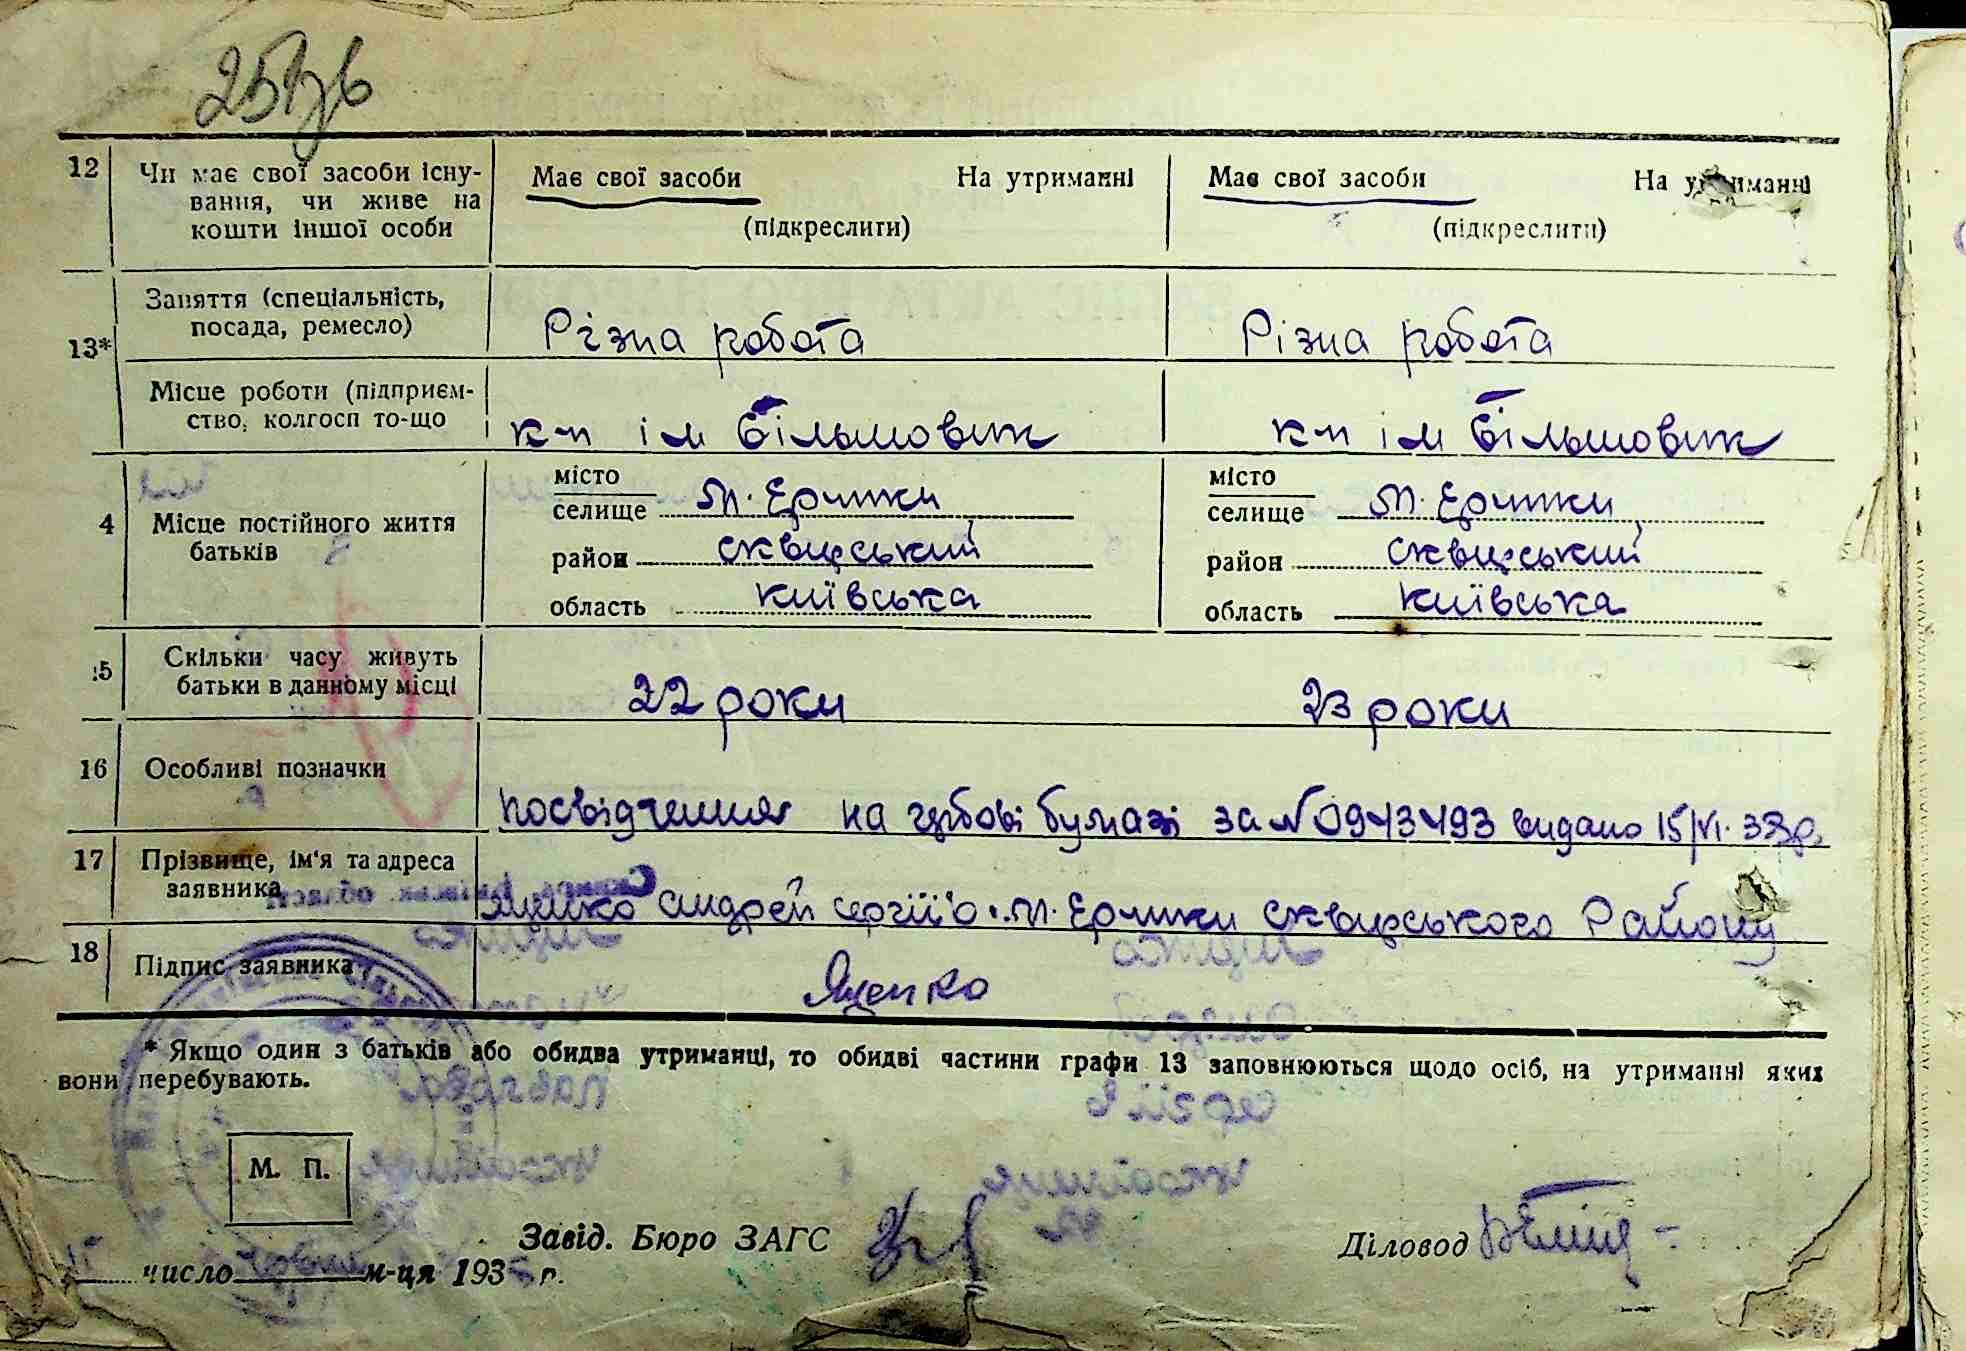 12 Чи має свої засоби існу-
вання, чи живе на
кошти іншої особи
Має свої засоби На утриманні
(підкреслити)
Має свої засоби На утриманні
(підкреслити)
13*
Заняття (спеціальність,
посада, ремесло)
Різна робота
Різна робота
Місце роботи (підприєм-
ство, колгосп то-що
к-п ім Більшовик
к-п ім Більшовик
4 Місце постійного життя
батьків
місто
селище м. Єрчики
район сквирський
область київська
місто
селище м. Єрчики
район сквирський
область київська
15 Скільки часу живуть
батьки в данному місці
22 роки
23 роки
16 Особливі позначки
посвідчення на гербові бумазі за № 0943493 видано 15/VI.
17 Прізвище, ім'я та адреса
заявника
андрей сергії'о. м. Єрчики сквирського Району
18 Підпис заявника
Яценко
* Якщо один з батьків або обидва утриманці, то обидві частини графи 13 заповнюються щодо осіб, на утриманні яких
вони перебувають.
М. П.
Завід. Бюро ЗАГС
Діловод
число м-ця 193 р.